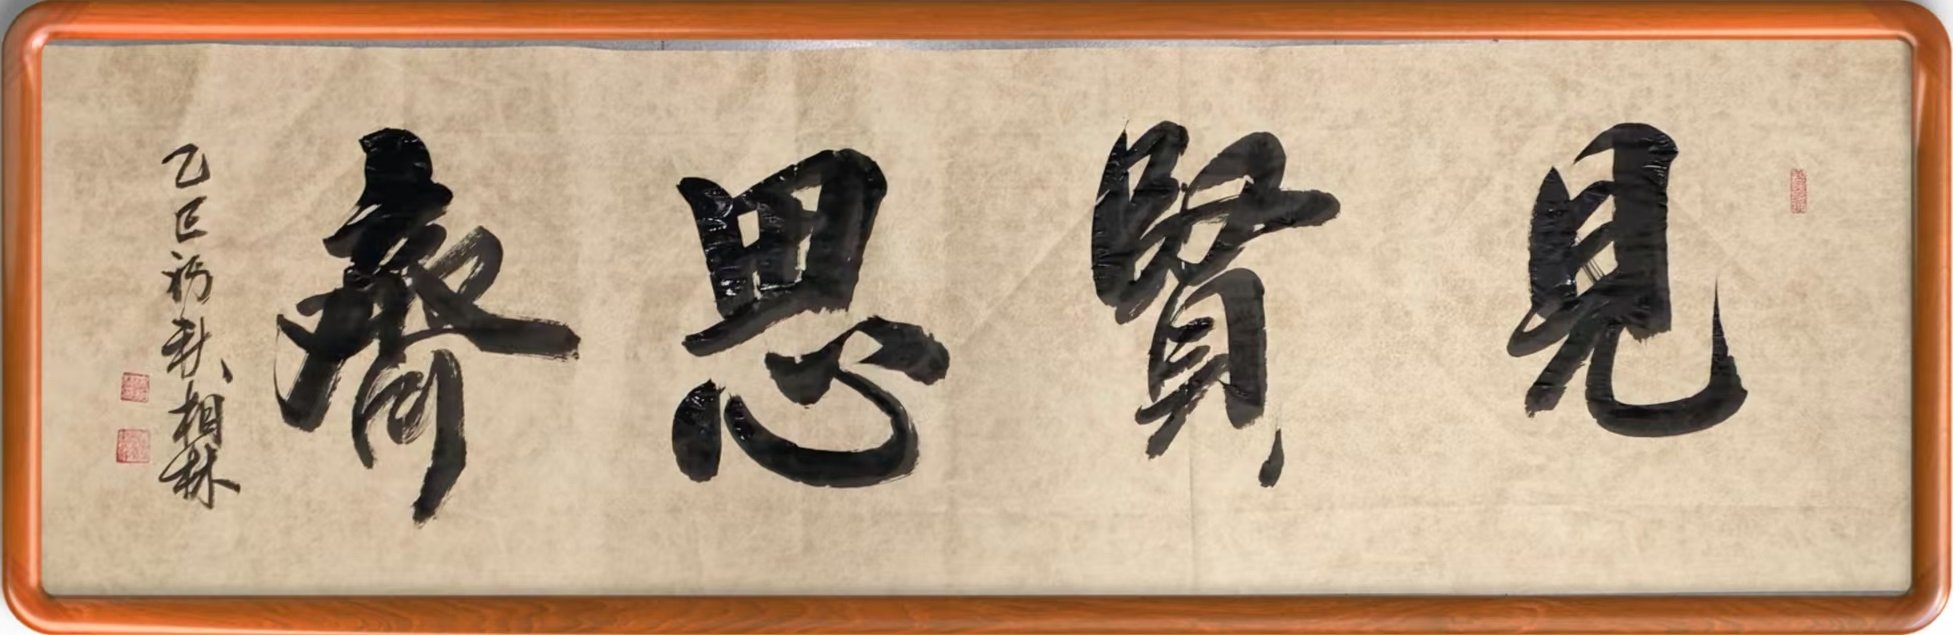 見賢思齊
乙巳初秋相林